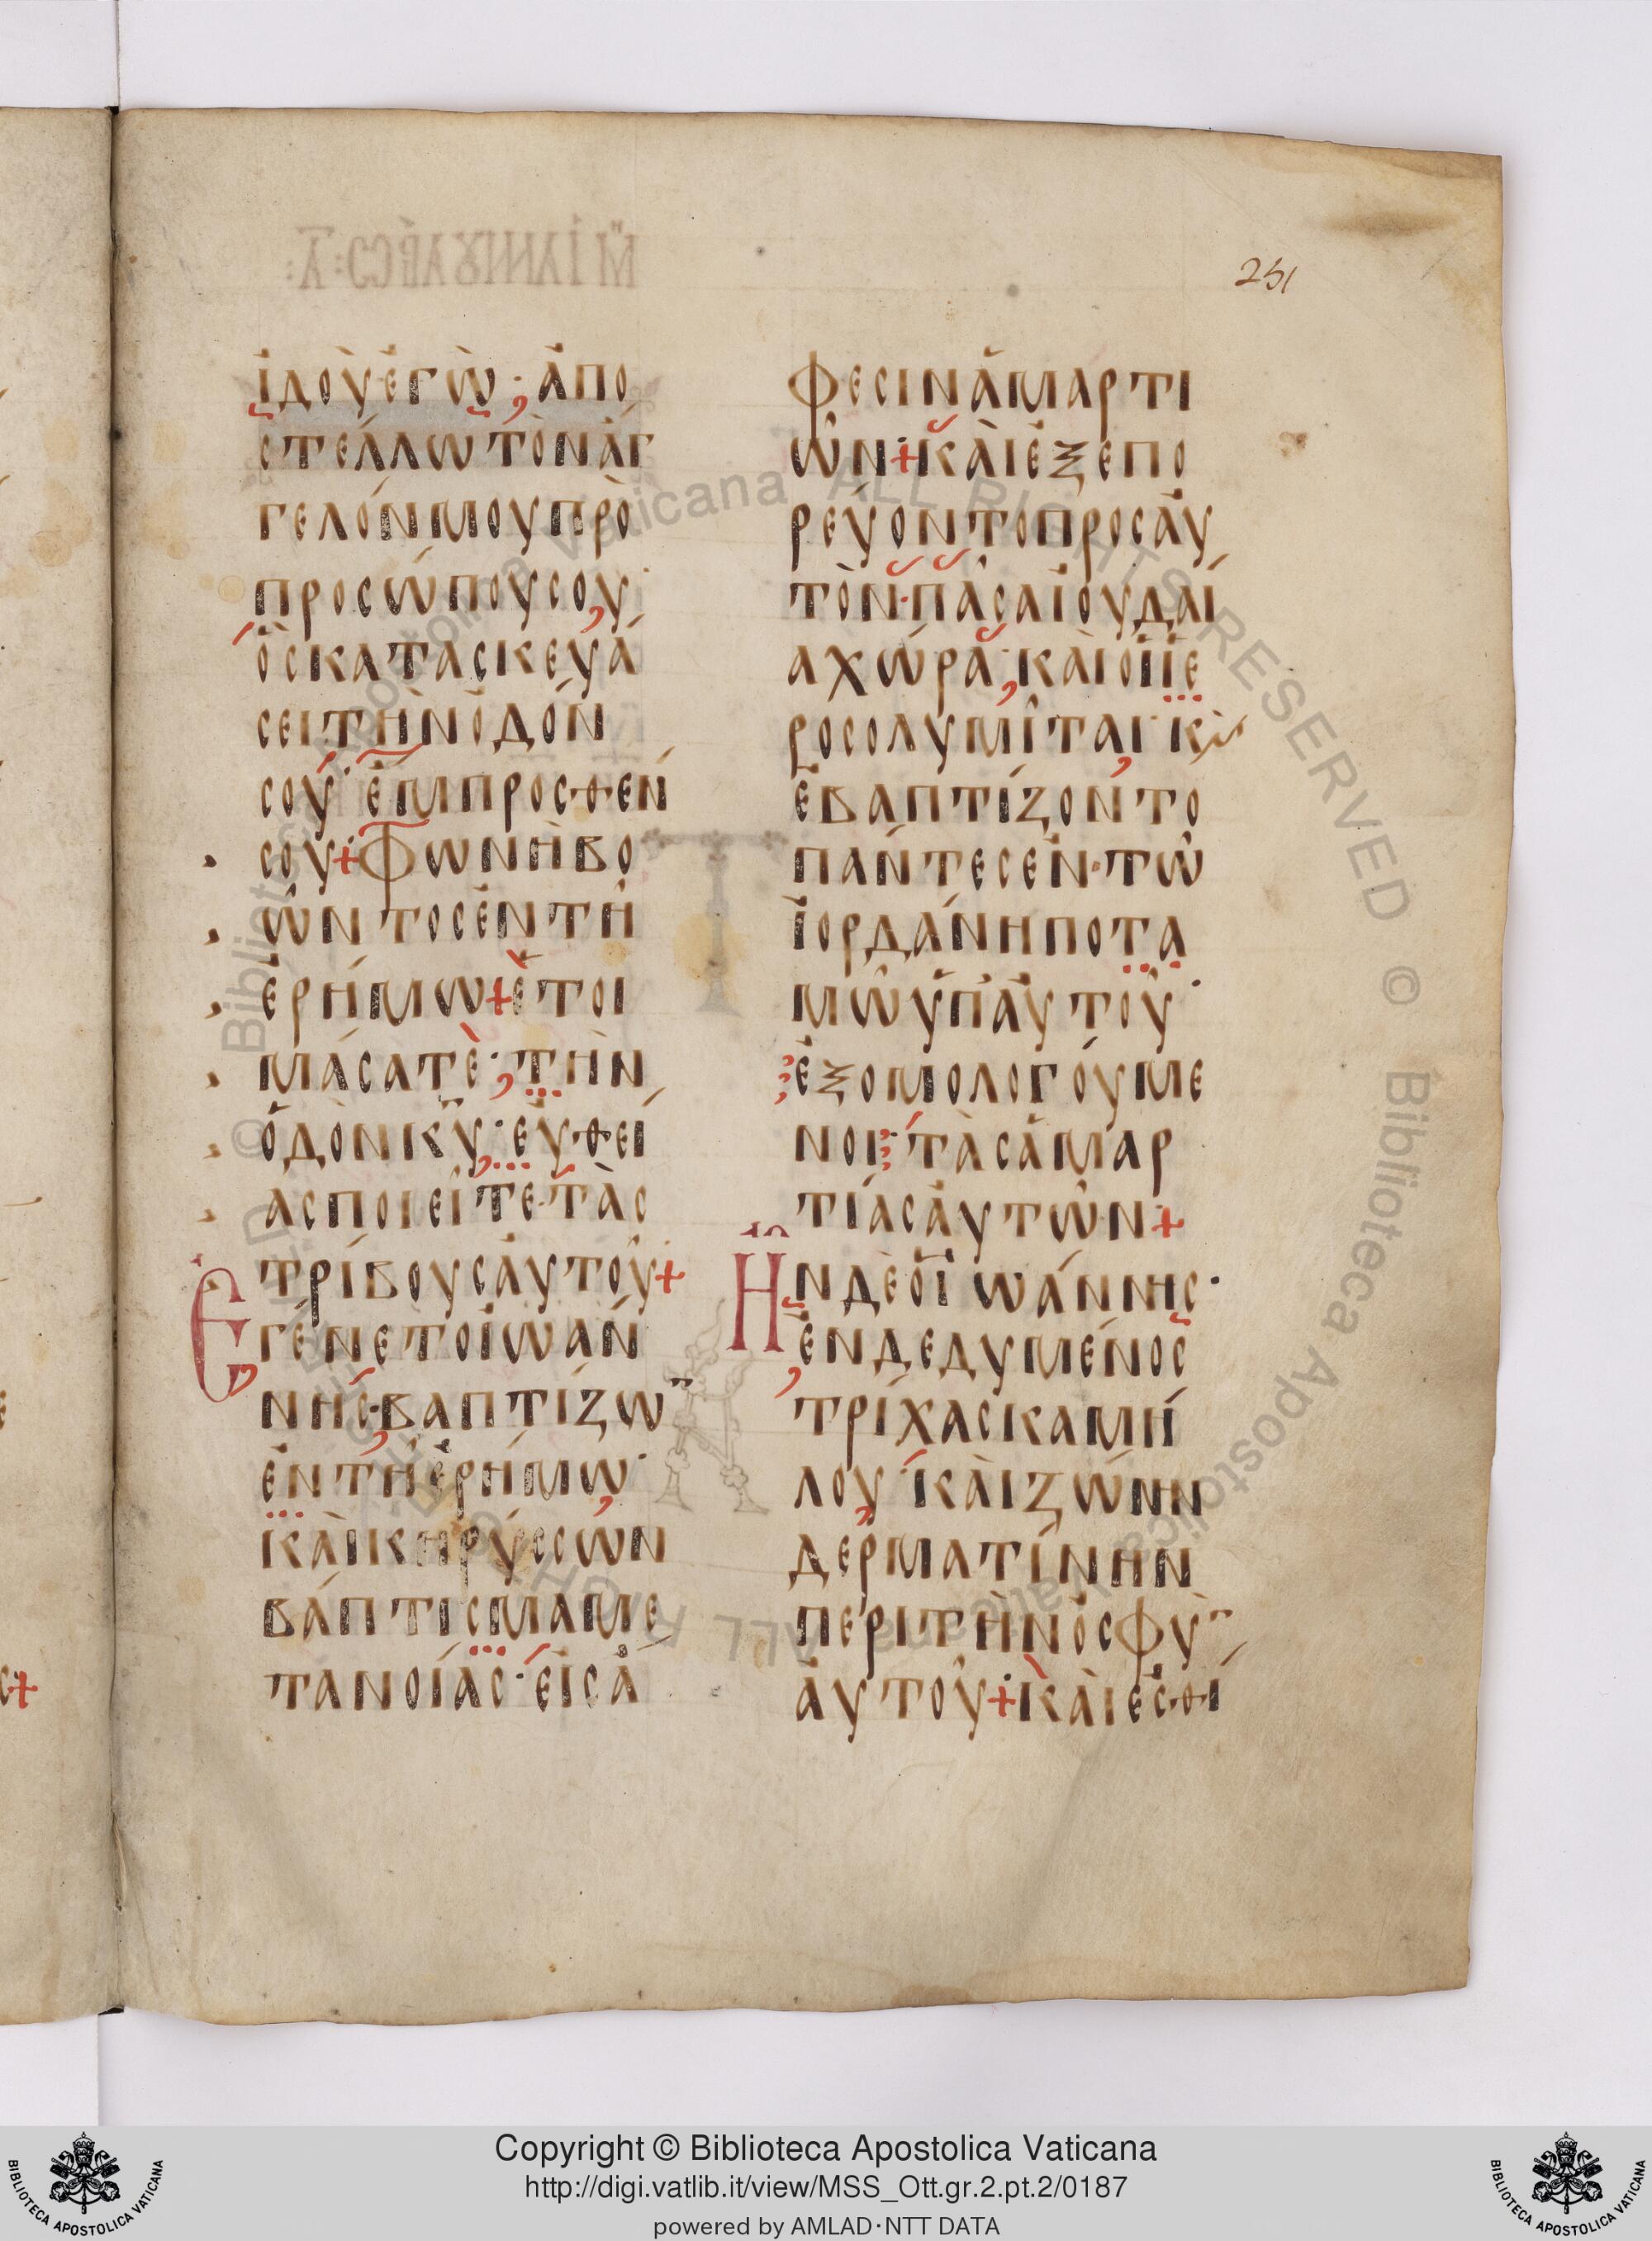 251
ἰδοὺ ἐγὼ· ἀπο
στέλλω τὸν ἄγ
γελόν μου πρὸ
προσώπου σου·
ὃς κατασκευά
σει τὴν ὁδόν
σου· ἔμπροσθέν
σου+Φωνὴ βο
ῶντος ἐν τῆ
ἐρήμω+ἑτοι
μάσατὲ· τὴν
ὁδὸν κ̅υ̅· ἐυθεί
ας ποιεῖτε· τὰς
τρίβους ἀυτοῦ+
Ε γένετο ἰωάν
νης· βαπτίζω̅
ἐν τῆ ἐρήμω·
καὶ κηρύσσων
βάπτισμα με
τανοίας· εἰς ἄ
φεσιν ἁμαρτι
ῶν+καὶ ἐξεπο
ρεύοντο προς ἀυ
τὸν· πᾶσα ἰουδαί
α χώρα· καὶ οἱ ἱε
ροσολυμῖται· κ̀
ἐβαπτίζοντο
πάντες ἐν· τῶ
ἰορδάνη ποτα
μῶ ὑπ ἀυτοῦ·
ἐξομολογούμε
νοι· τὰς ἁμαρ
τίας ἀυτῶν+
Η̂ν δὲ ὁ ἰωάννης·
ἐνδεδυμένος
τρίχας καμή
λου· καὶ ζώνην
δερματίνην
περὶ τὴν ὀσφὺ̅
ἀυτοῦ+καὶ ἐσθί
Copyright © Biblioteca Apostolica Vaticana
http://digi.vatlib.it/view/MSS_Ott.gr.2.pt.2/0187
powered by AMLAD·NTT DATA
BIBLIOTECA APOSTOLICA VATICANA
BIBLIOTECA APOSTOLICA VATICANA